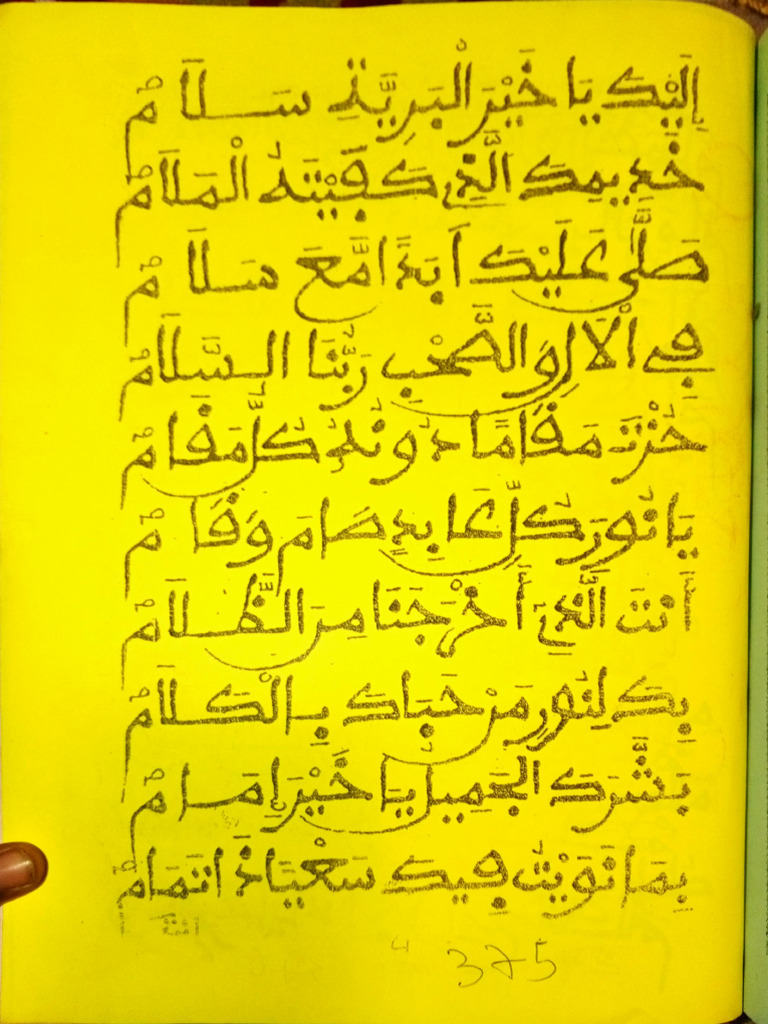 إِلَيْكَ يَا خَيْرَ الْبَرِيَّةِ سَلَامْ
خَدِيمِكَ الَّذِي كَفَيْتَهُ الْمَلَامْ
صَلَّى عَلَيْكَ أَبَدًا مَّعَ سَلَامْ
فِي الْآلِ وَالصَّحْبِ رَبُّنَا السَّلَامْ
حُزْتَ مَقَامًا دُونَهُ كُلُّ مَقَامْ
يَا نُورَ كُلِّ عَابِدٍ صَامَ وَقَامْ
أَنتَ الَّذِي أَخْرَجَنَا مِنَ الظَّلَامْ
بِكَ لِنُورٍ مَنْ حَبَاكَ بِالْكَلَامْ
بَشَّرَكَ الْجَمِيلُ يَا خَيْرَ إِمَامْ
بِمَا نَوَيْتُ فِيكَ سَعْيًا ذَا تَمَامْ
375